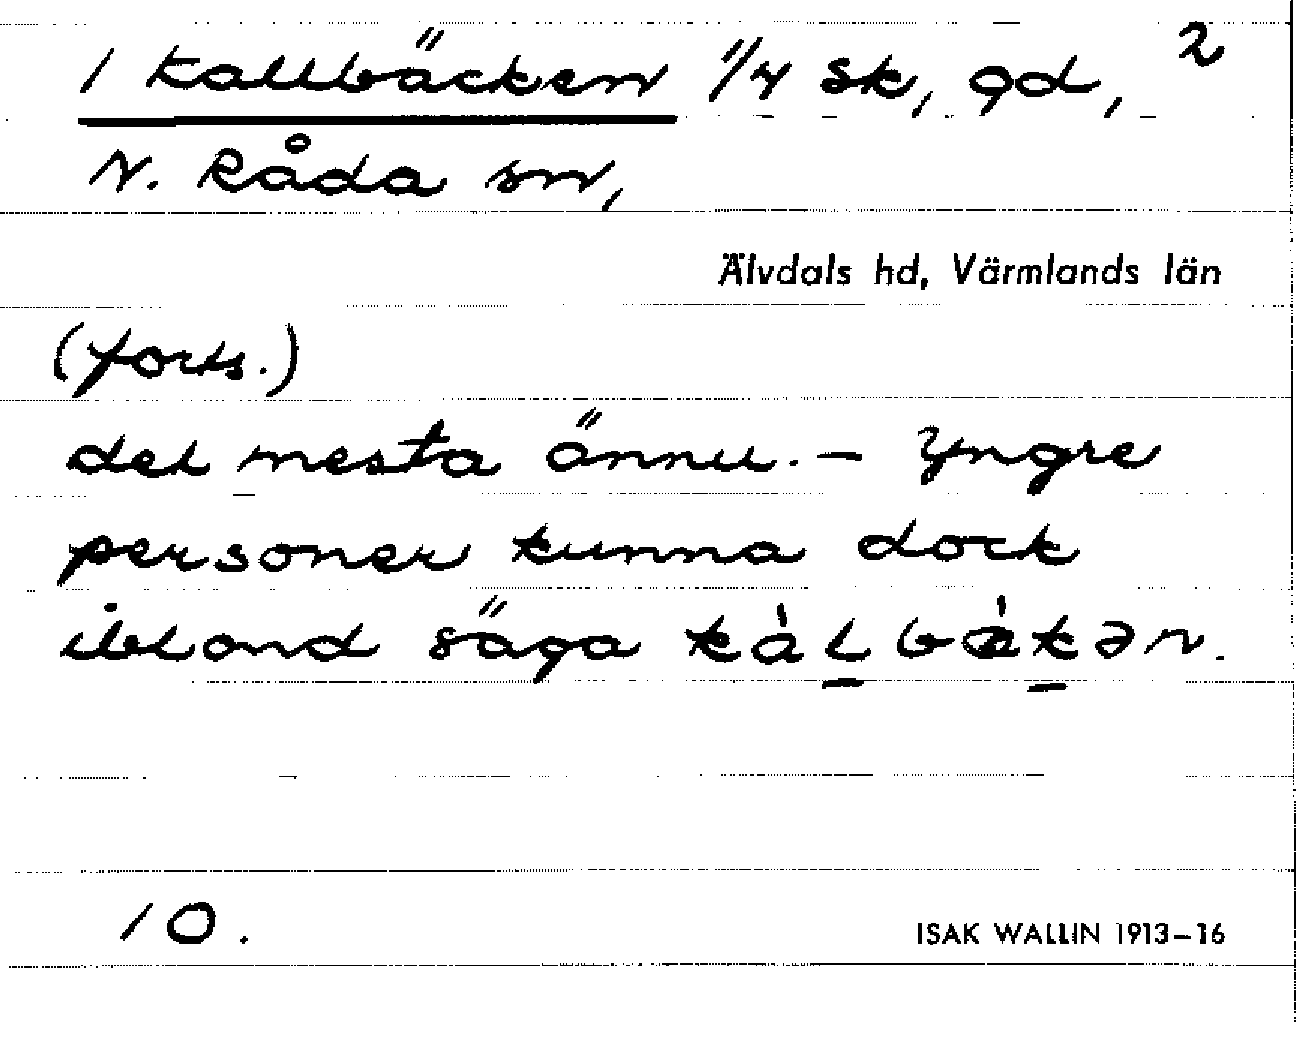 1 Kallbäcken 1/4 sk, gd, 2
N. Råda sn,
Älvdals hd, Värmlands län
(forts.)
det mesta ännu. — Yngre
personer kunna dock
ibland säga kàlbákən.
10.
ISAK WALLIN 1913–16